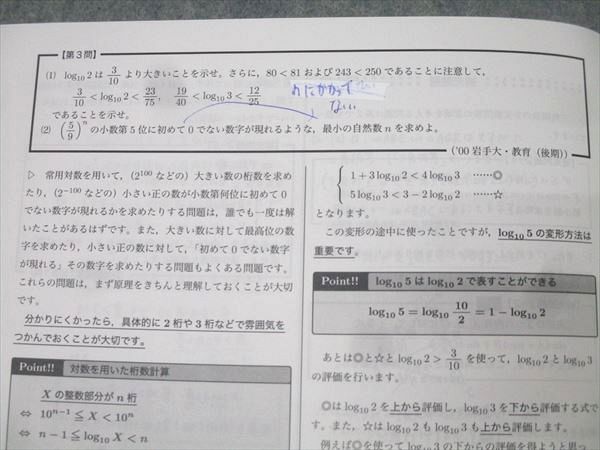 【第3問】
(1) log₁₀2 は 3/10 より大きいことを示せ。さらに，80 < 81 および 243 < 250 であることに注意して，
3/10 < log₁₀2 < 23/75, 19/40 < log₁₀3 < 12/25
であることを示せ。
(2) (5/9)ⁿ の小数第5位に初めて0でない数字が現れるような，最小の自然数 n を求めよ。
nにかかって
ない
('00 岩手大・教育（後期）)
▷ 常用対数を用いて，(2¹⁰⁰ などの) 大きい数の桁数を求め
たり，(2⁻¹⁰⁰ などの) 小さい正の数が小数第何位に初めて0
でない数字が現れるかを求めたりする問題は，誰でも一度は解
いたことがあるはずです。また，大きい数に対して最高位の数
字を求めたり，小さい正の数に対して，「初めて0でない数字
が現れる」その数字を求めたりする問題もよくある問題です。
これらの問題は，まず原理をきちんと理解しておくことが大切
です。
分かりにくかったら，具体的に2桁や3桁などで雰囲気を
つかんでおくことが大切です。
Point!! 対数を用いた桁数計算
X の整数部分が n 桁
⇔ 10ⁿ⁻¹ ≦ X < 10ⁿ
⇔ n − 1 ≦ log₁₀ X < n
1 + 3 log₁₀2 < 4 log₁₀3 ……◎
5 log₁₀3 < 3 − 2 log₁₀2 ……☆
となります。
この変形の途中に使ったことですが，log₁₀5 の変形方法は
重要です。
Point!! log₁₀5 は log₁₀2 で表すことができる
log₁₀5 = log₁₀ 10/2 = 1 − log₁₀2
あとは◎と☆と log₁₀2 > 3/10 を使って，log₁₀2 と log₁₀3
の評価を行います。
◎は log₁₀2 を上から評価し，log₁₀3 を下から評価する式で
す。また，☆は log₁₀2 も log₁₀3 も上から評価します。
例えば◎を使って log₁₀3 の下からの評価を得ようと思っ